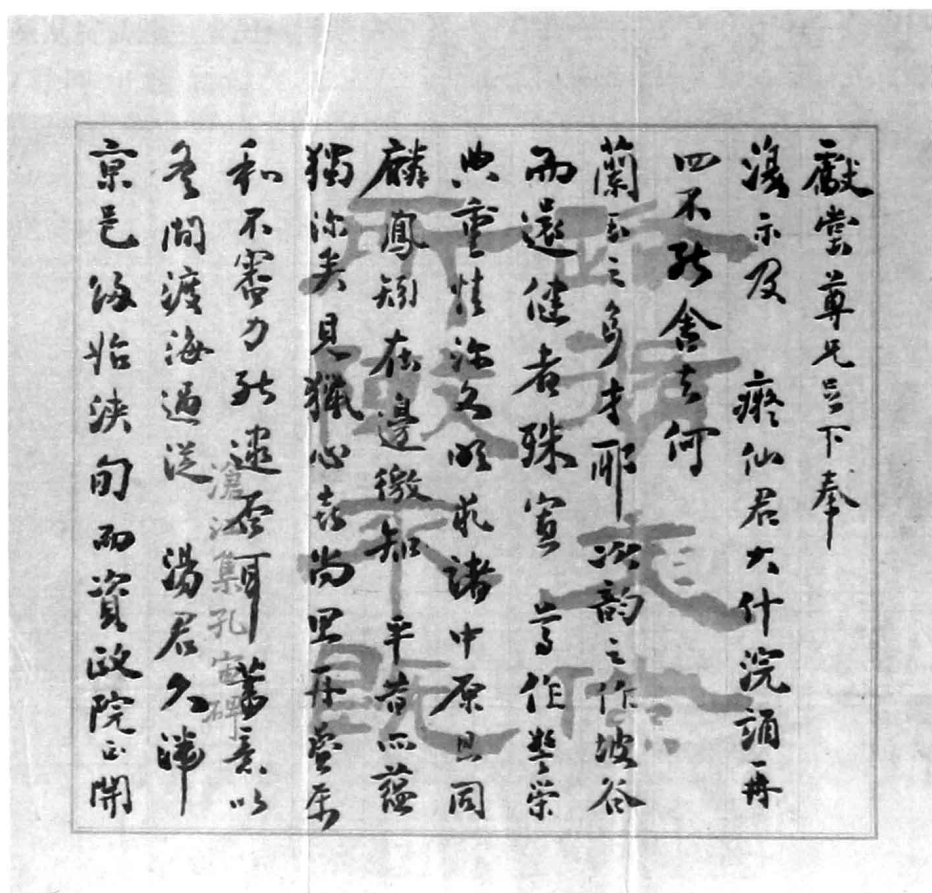 獻堂尊兄足下奉
示及 癡仙君大什浣誦再
四不能舍去何
蘭玉之多才耶次韵之作坡谷
而還健者殊寡 尊作
典重情深文明求諸中原且同
麟鳳矧在邊徼知 平昔所蘊
獨深矣見獵心喜尚思再疊
和不審力能逮否耳 舊意以
冬間渡海過從 湯君久滯
京邑歸始浹旬而資政院正開
滄江集孔宙碑